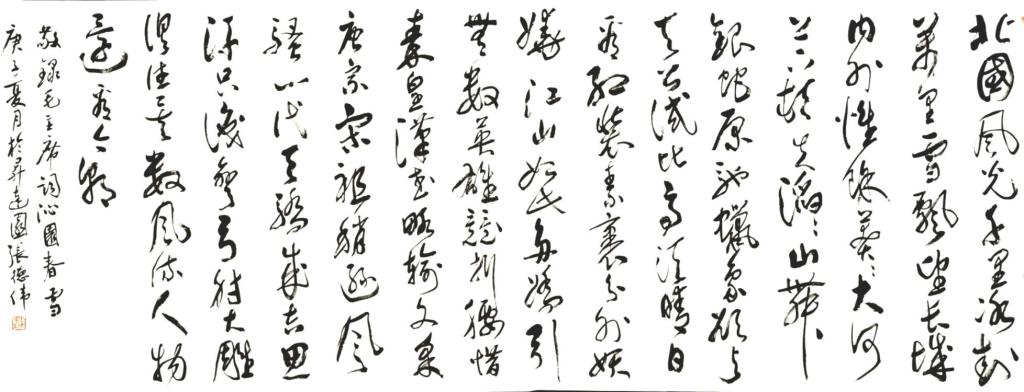 北國风光千里冰封
萬里雪飄望长城
内外惟馀莽〻大河
上下頓失滔〻山舞
銀蛇原驰蠟象欲与
天公试比高须晴日
看红装素裹分外妖
嬈江山如此多嬌引
無數英雄競折腰惜
秦皇漢武略输文采
唐宗宋祖稍逊风
骚一代天骄成吉思
汗只識弯弓射大雕
俱往矣數风流人物
還看今朝
敬録毛主席词沁園春雪
庚子夏月於昇達園張德伟